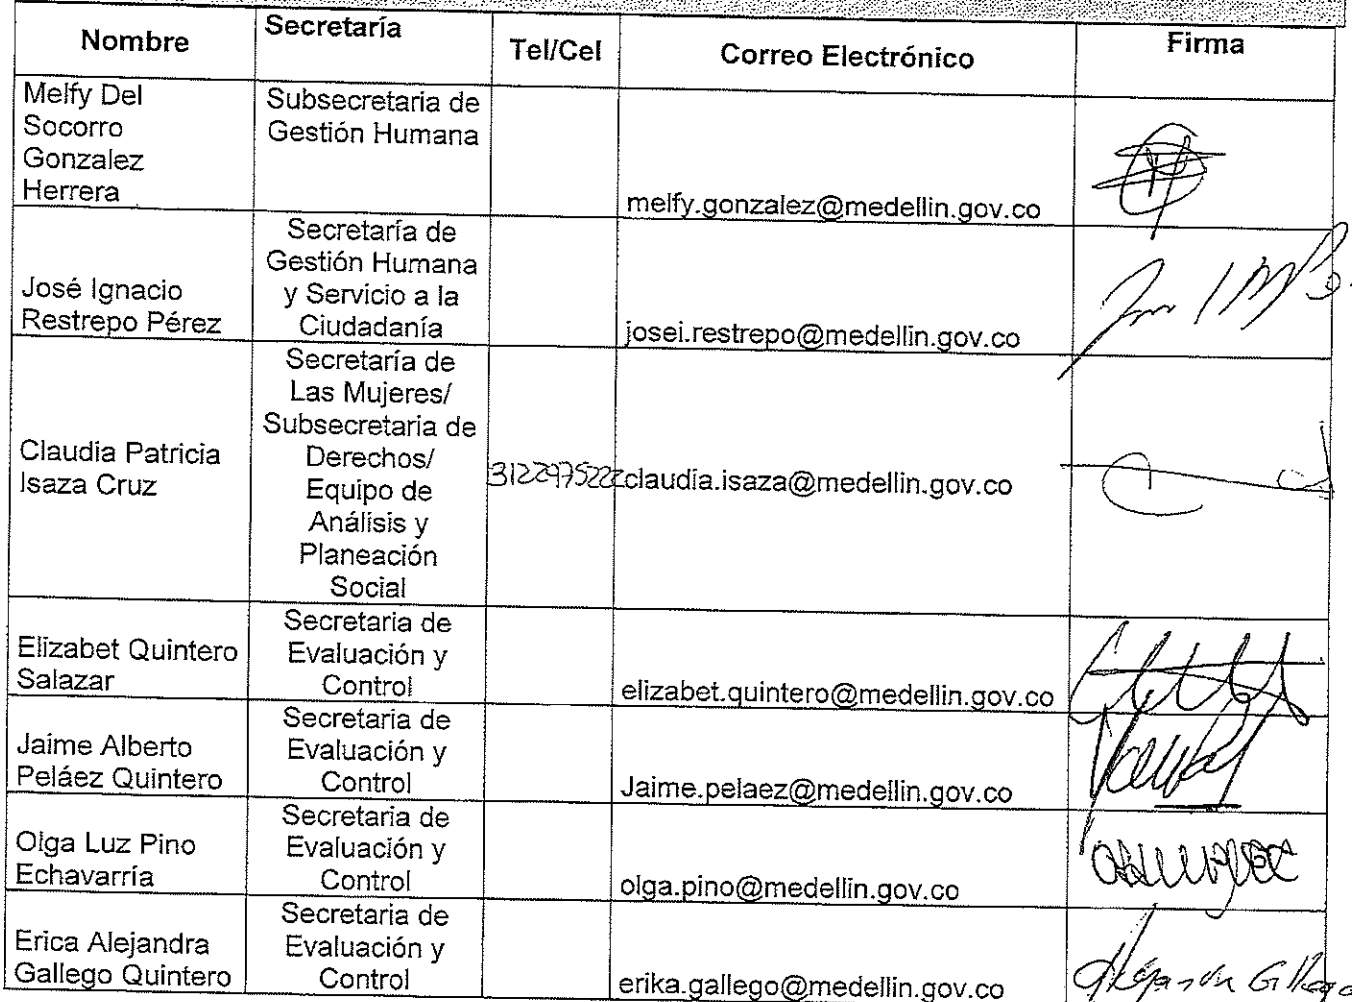 Nombre
Secretaría
Tel/Cel
Correo Electrónico
Firma
Melfy Del
Socorro
Gonzalez
Herrera
Subsecretaria de
Gestión Humana
melfy.gonzalez@medellin.gov.co
José Ignacio
Restrepo Pérez
Secretaría de
Gestión Humana
y Servicio a la
Ciudadanía
josei.restrepo@medellin.gov.co
Claudia Patricia
Isaza Cruz
Secretaría de
Las Mujeres/
Subsecretaria de
Derechos/
Equipo de
Análisis y
Planeación
Social
3122975222
claudia.isaza@medellin.gov.co
Elizabet Quintero
Salazar
Secretaria de
Evaluación y
Control
elizabet.quintero@medellin.gov.co
Jaime Alberto
Peláez Quintero
Secretaria de
Evaluación y
Control
Jaime.pelaez@medellin.gov.co
Olga Luz Pino
Echavarría
Secretaria de
Evaluación y
Control
olga.pino@medellin.gov.co
Erica Alejandra
Gallego Quintero
Secretaria de
Evaluación y
Control
erika.gallego@medellin.gov.co
Alejandra Gallego